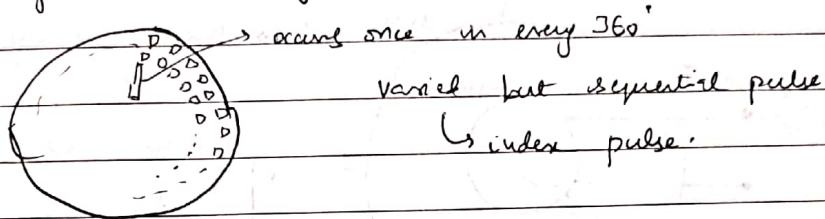 occurs once in every 360°
varied but sequential pulse
↳ index pulse.